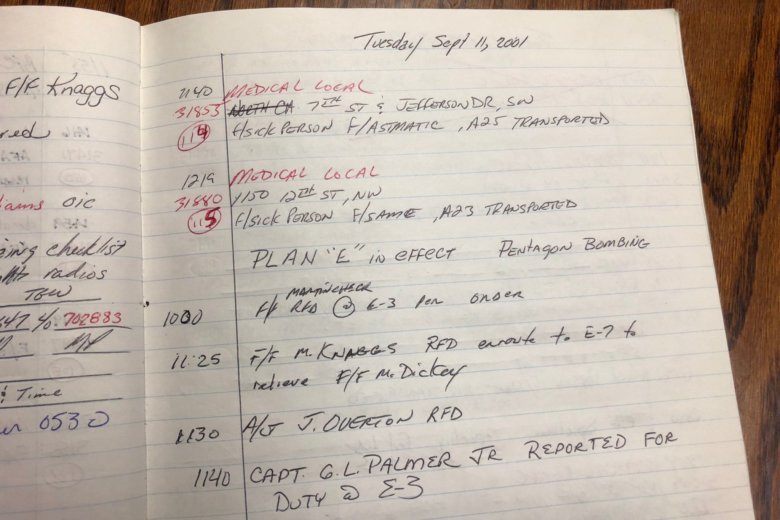 F/F Knaggs
oic
checklist
radios
TGW
702883
Time
0530
Tuesday Sept 11, 2001
1140 MEDICAL LOCAL
31853 NORTH CA 7TH ST & JEFFERSON DR, SW
114 F/SICK PERSON F/ASTMATIC, A25 TRANSPORTED
1219 MEDICAL LOCAL
31880 1150 12TH ST, NW
115 F/SICK PERSON F/SAME, A23 TRANSPORTED
PLAN "E" in effect PENTAGON BOMBING
1000 F/F RFD @ E-3 per order
11:25 F/F M. KNAGGS RFD enroute to E-7 to
relieve F/F McDickey
1130 A/J J. OVERTON RFD
1140 CAPT. G.L. PALMER JR REPORTED FOR
DUTY @ E-3